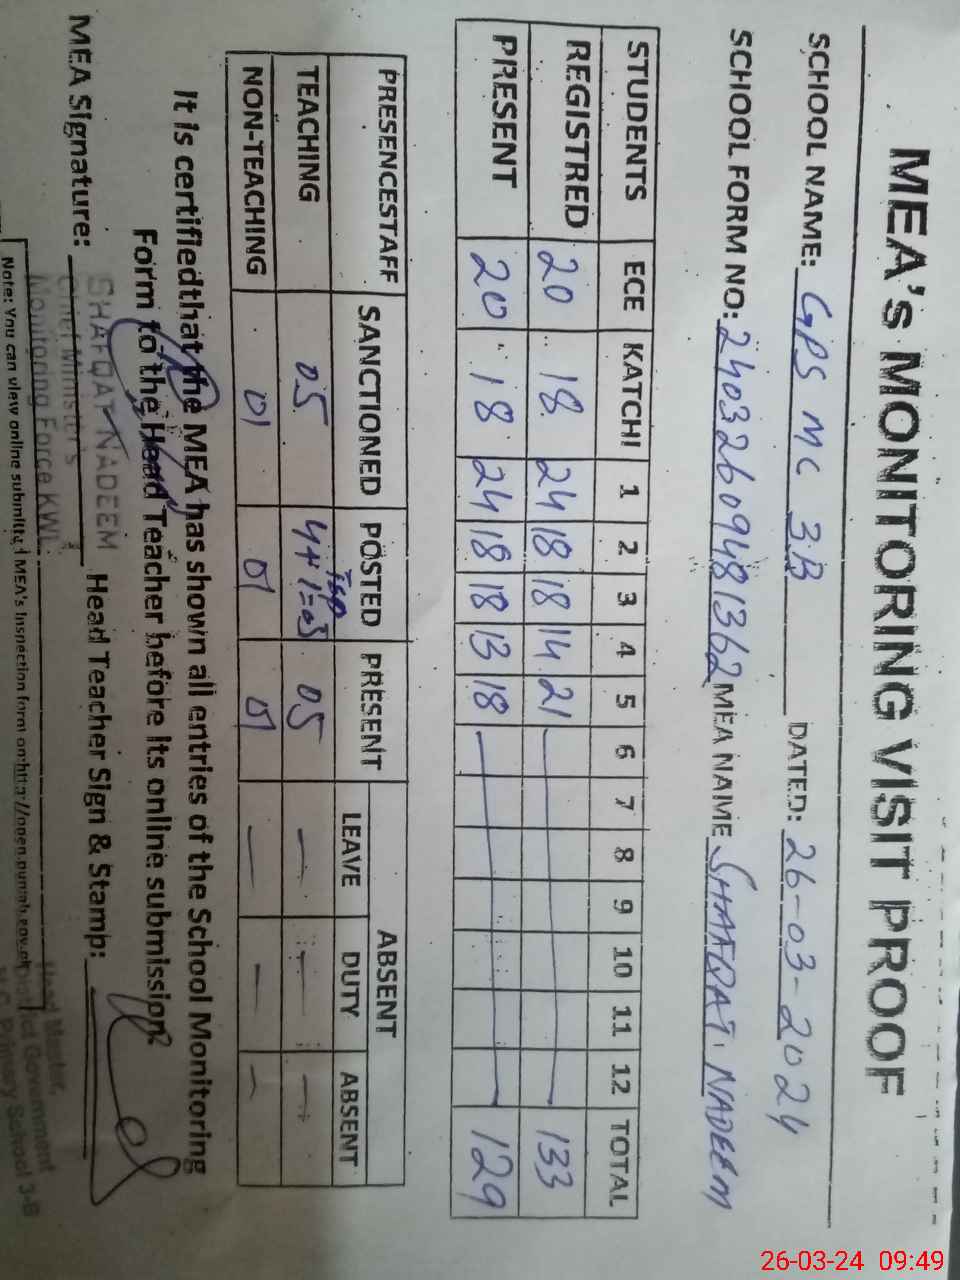 MEA's MONITORING VISIT PROOF
SCHOOL NAME: GPS MC 3B DATED: 26-03-2024
SCHOOL FORM NO: 2403260948 1362 MEA NAME SHAFQAT NADEEM
STUDENTS ECE KATCHI 1 2 3 4 5 6 7 8 9 10 11 12 TOTAL
REGISTRED 20 18 24 18 18 14 21 133
PRESENT 20 18 24 18 18 13 18 129
PRESENCESTAFF SANCTIONED POSTED PRESENT ABSENT
LEAVE DUTY ABSENT
TEACHING 05 4+1=05 05 — — —
NON-TEACHING 01 01 01 — — —
It is certifiedthat the MEA has shown all entries of the School Monitoring
Form to the Head Teacher before its online submission
MEA Signature: Head Teacher Sign & Stamp:
SHAFQAT NADEEM
Chief Minister's
Monitoring Force KWL
Head Master,
District Government
M.C. Primary School 3-B
Note: You can view online submitted MEA's Inspection form on:http://open.punjab.gov.pk
26-03-24 09:49